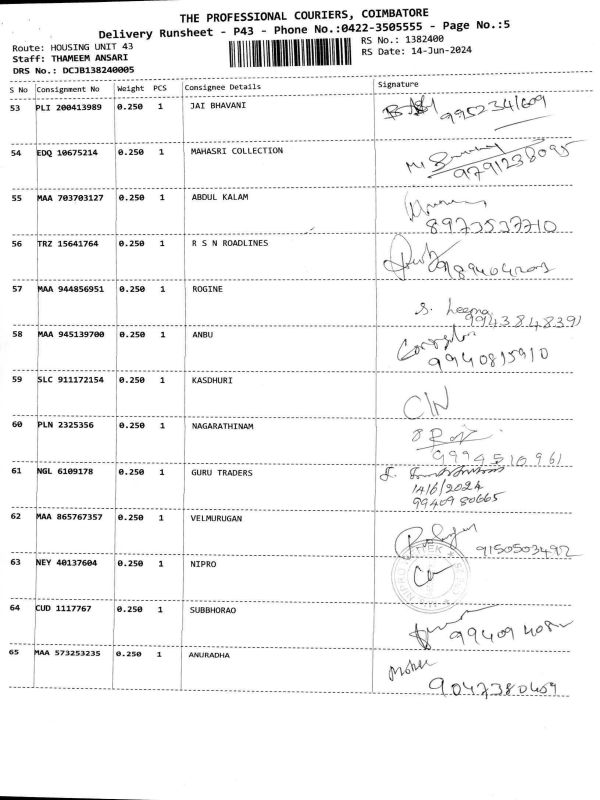 THE PROFESSIONAL COURIERS, COIMBATORE
Delivery Runsheet - P43 - Phone No.:0422-3505555 - Page No.:5
Route: HOUSING UNIT 43
RS No.: 1382400
Staff: THAMEEM ANSARI
RS Date: 14-Jun-2024
DRS No.: DCJB138240005
S No Consignment No Weight PCS Consignee Details Signature
53 PLI 200413989 0.250 1 JAI BHAVANI 9952341609
54 EDQ 10675214 0.250 1 MAHASRI COLLECTION 9791238095
55 MAA 703703127 0.250 1 ABDUL KALAM 8973537710
56 TRZ 15641764 0.250 1 R S N ROADLINES
57 MAA 944856951 0.250 1 ROGINE S. Leema 9943848391
58 MAA 945139700 0.250 1 ANBU 9940815910
59 SLC 911172154 0.250 1 KASDHURI
60 PLN 2325356 0.250 1 NAGARATHINAM 9994510961
61 NGL 6109178 0.250 1 GURU TRADERS
14/6/2024
9940980665
62 MAA 865767357 0.250 1 VELMURUGAN 9150503492
63 NEY 40137604 0.250 1 NIPRO
64 CUD 1117767 0.250 1 SUBBHORAO
65 MAA 573253235 0.250 1 ANURADHA 9047380459